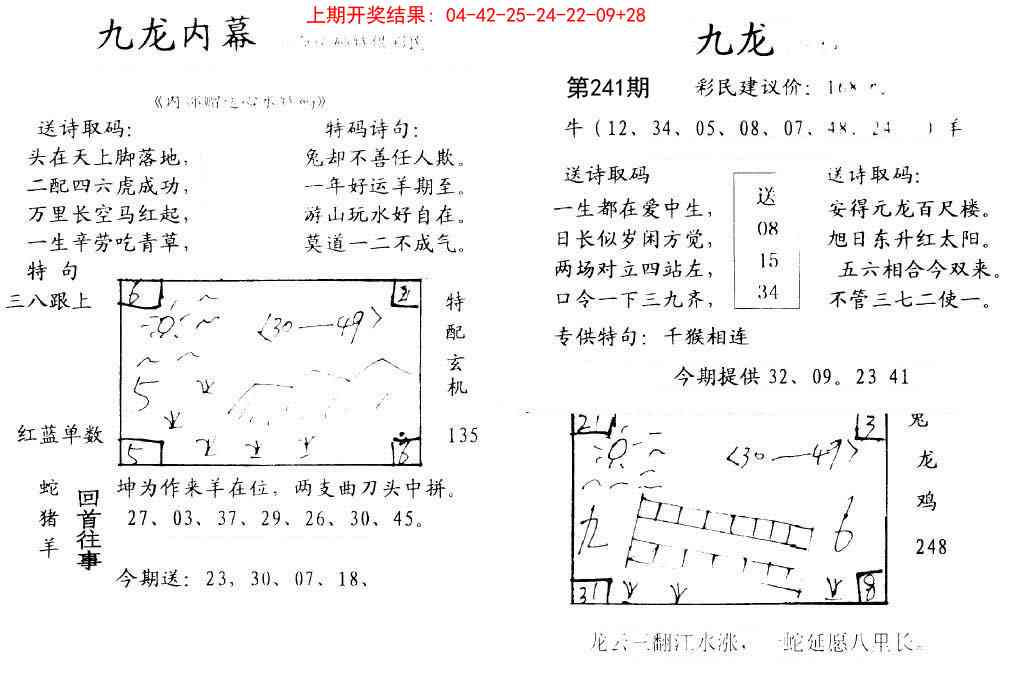 上期开奖结果：04-42-25-24-22-09+28
九龙内幕
送诗取码：
特码诗句：
头在天上脚落地，
兔却不善任人欺。
二配四六虎成功，
一年好运羊期至。
万里长空马红起，
游山玩水好自在。
一生辛劳吃青草，
莫道一二不成气。
特 句
三八跟上
红蓝单数
6
2
〈30—49〉
5
5
6
特配玄机
135
蛇猪羊
回首往事
坤为作来羊在位，两支曲刀头中拼。
27、03、37、29、26、30、45。
今期送：23，30、07、18、
九龙
第241期
彩民建议价：
牛（12、34、05、08、07、48、24
）羊
送诗取码
送诗取码：
一生都在爱中生，
安得元龙百尺楼。
日长似岁闲方觉，
旭日东升红太阳。
两场对立四站左，
五六相合今双来。
口令一下三九齐，
不管三七二使一。
送
08
15
34
专供特句：千猴相连
今期提供 32、09。23 41
21
3
〈30—49〉
九
6
31
8
兔龙鸡
248
龙云三翻江水涨，一蛇延愿八里长。